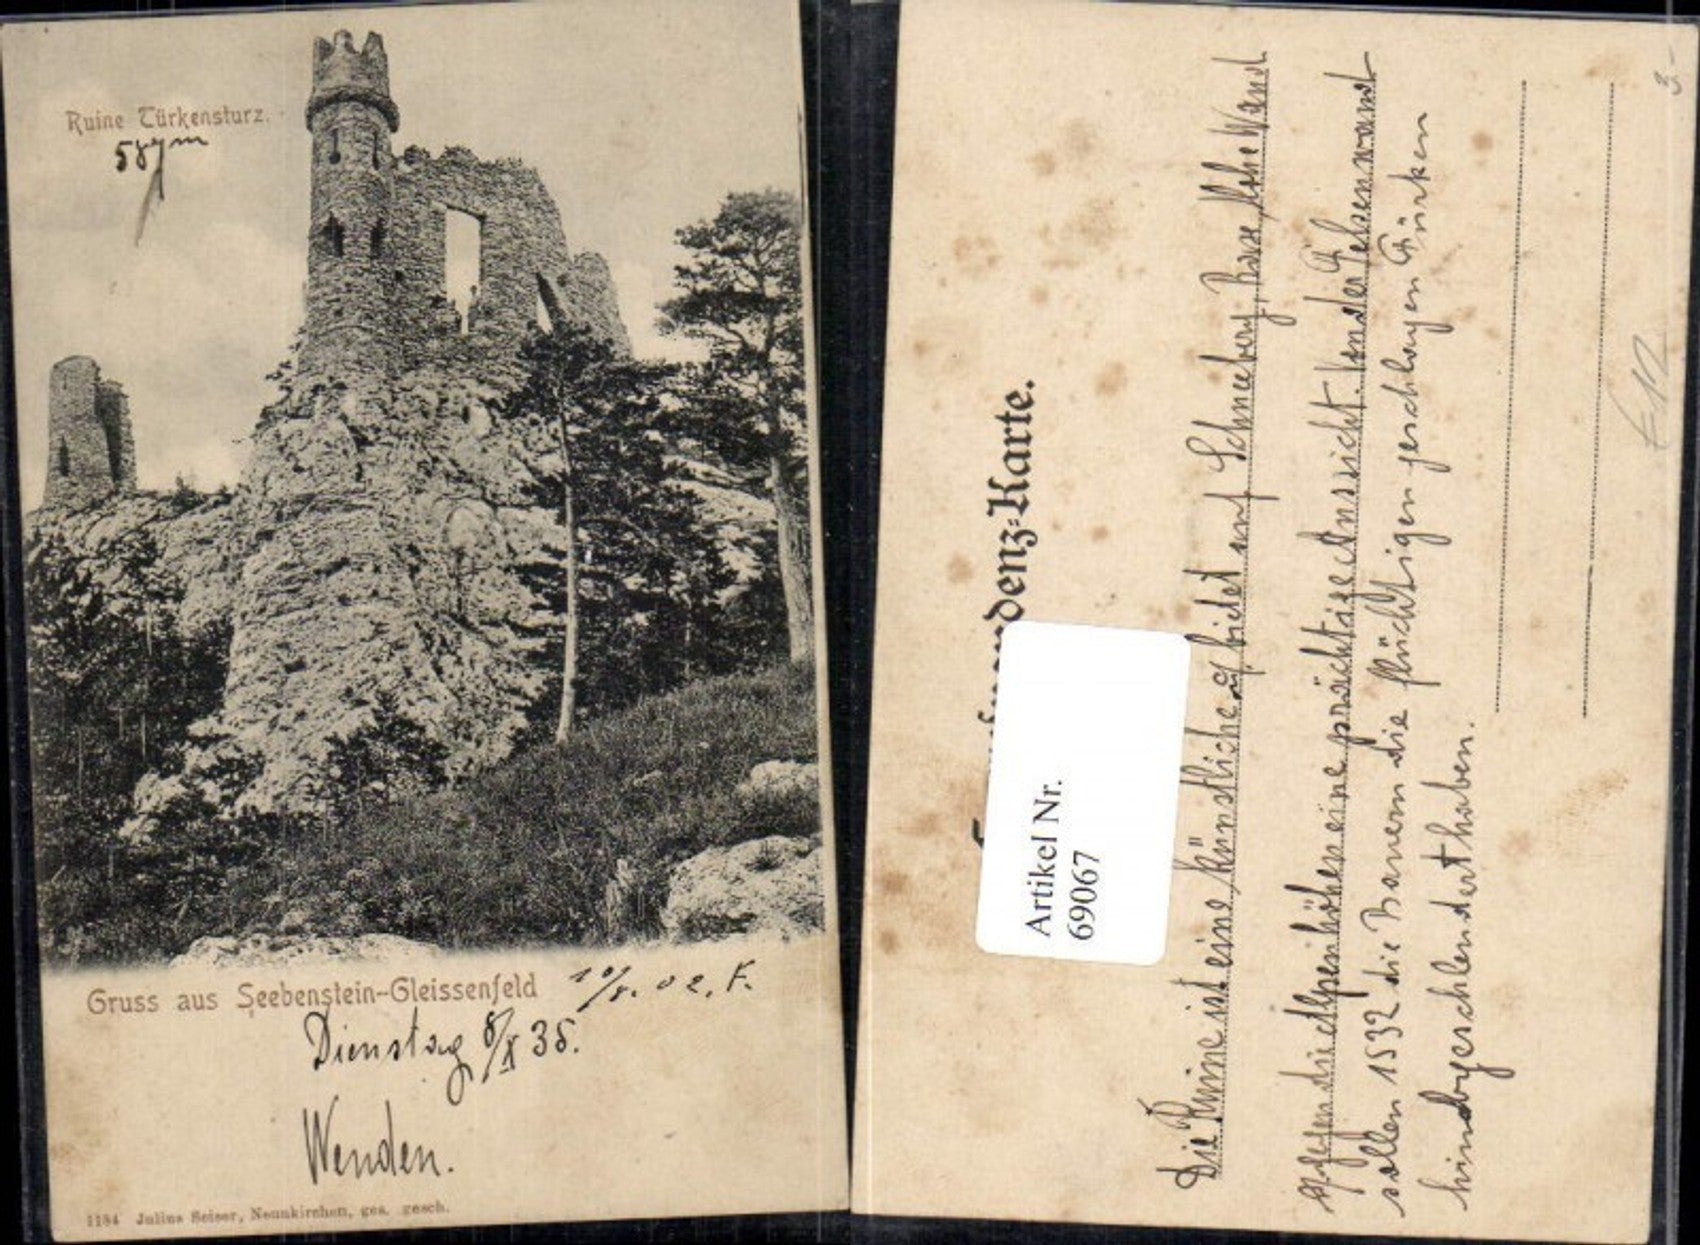 Ruine Türkensturz.
587m
Gruss aus Seebenstein-Gleissenfeld
10/8. 02. F.
Dienstag 8/X 35.
Wenden.
1184 Julius Seiser, Neunkirchen, ges. gesch.
Correspondenz-Karte.
Artikel Nr.
69067
Die Ruine ist eine künstliche, bietet auf Schneeberg, Raxe, Hohe Wand
gegen die Alpenhöhen eine prächtige Aussicht. Von der Felsenwand
sollen 1532 die Bauern die flüchtigen geschlagen Türken
hinabgeschleudert haben.
3.-